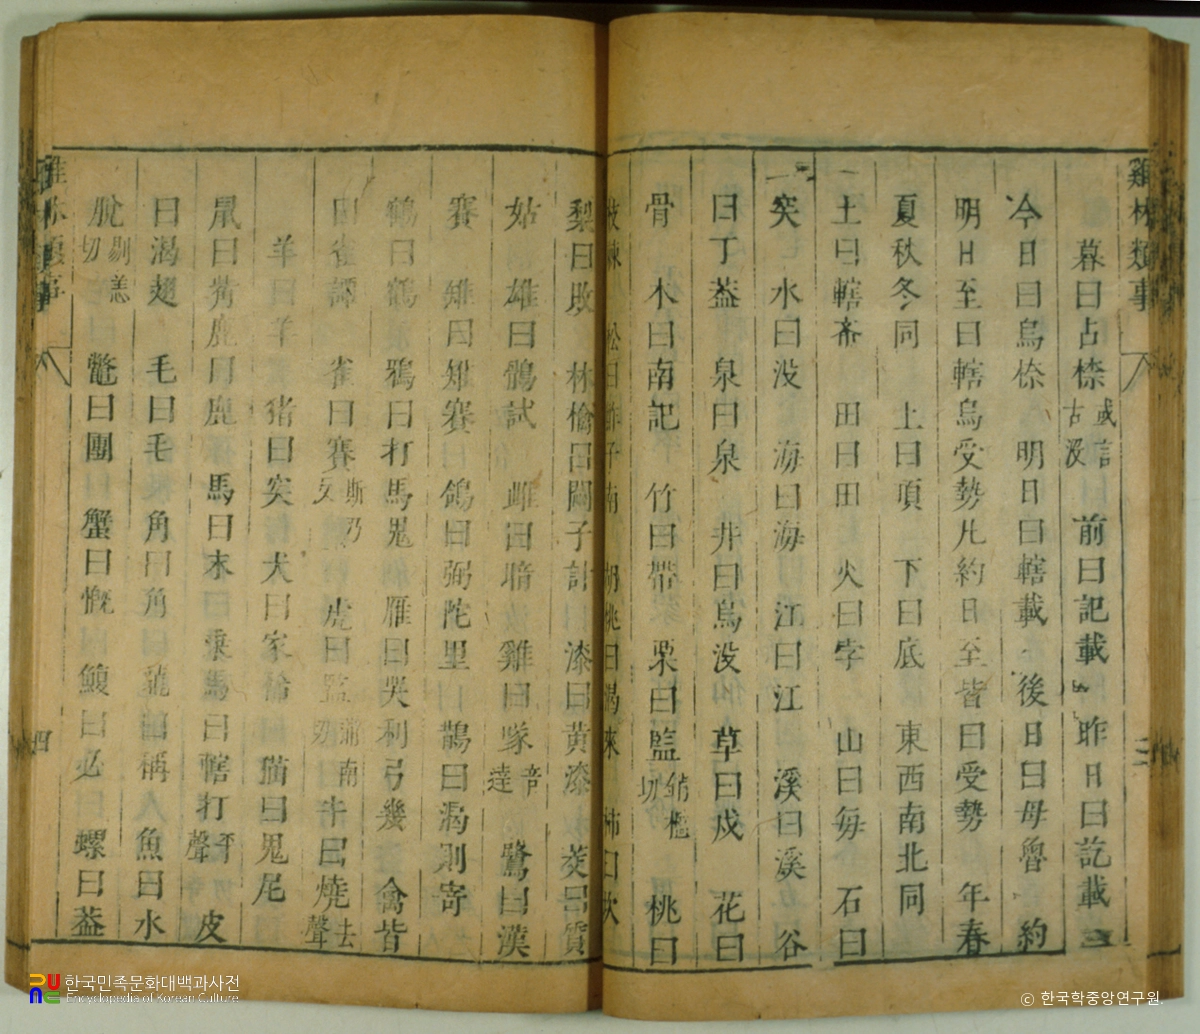 雞林類事
暮曰占㮈或言古没 前曰記載 昨日曰訖載
今日曰烏㮈 明日曰轄載 後日曰母魯 約
明日至曰轄烏受勢凡約日至皆曰受勢 年春
夏秋冬同 上曰頂 下曰底 東西南北同
土曰轄希 田曰田 火曰孛 山曰每 石曰
突 水曰没 海曰海 江曰江 溪曰溪 谷
曰丁蓋 泉曰泉 井曰烏没 草曰戍 花曰
骨 木曰南記 竹曰帶 栗曰監切 桃曰
松曰 子南 胡桃曰渴來 柿曰坎
梨曰敗 林檎曰悶子計 漆曰黄漆 菱曰質
姑 雄曰鶻試 雌曰暗 雞曰啄音達 鷺曰漢
賽 雉曰雉賽 鴿曰弼陀里 鵲曰渴則寄
鶴曰鶴 鴉曰打馬鬼 雁曰哭利弓幾 禽皆
曰雀譚 雀曰賽斯乃反 虎曰監蒲南切 牛曰燒去聲
羊曰羊 猪曰突 犬曰家稀 猫曰鬼尼
鼠曰觜 鹿曰鹿 馬曰末 乘馬曰轄打平聲 皮
曰渴翅 毛曰毛 角曰角 龍曰稱 魚曰水
脫剔恙切 鼈曰團 蟹曰慨 鰒曰必 螺曰蓋
四
한국민족문화대백과사전
Encyclopedia of Korean Culture
© 한국학중앙연구원.